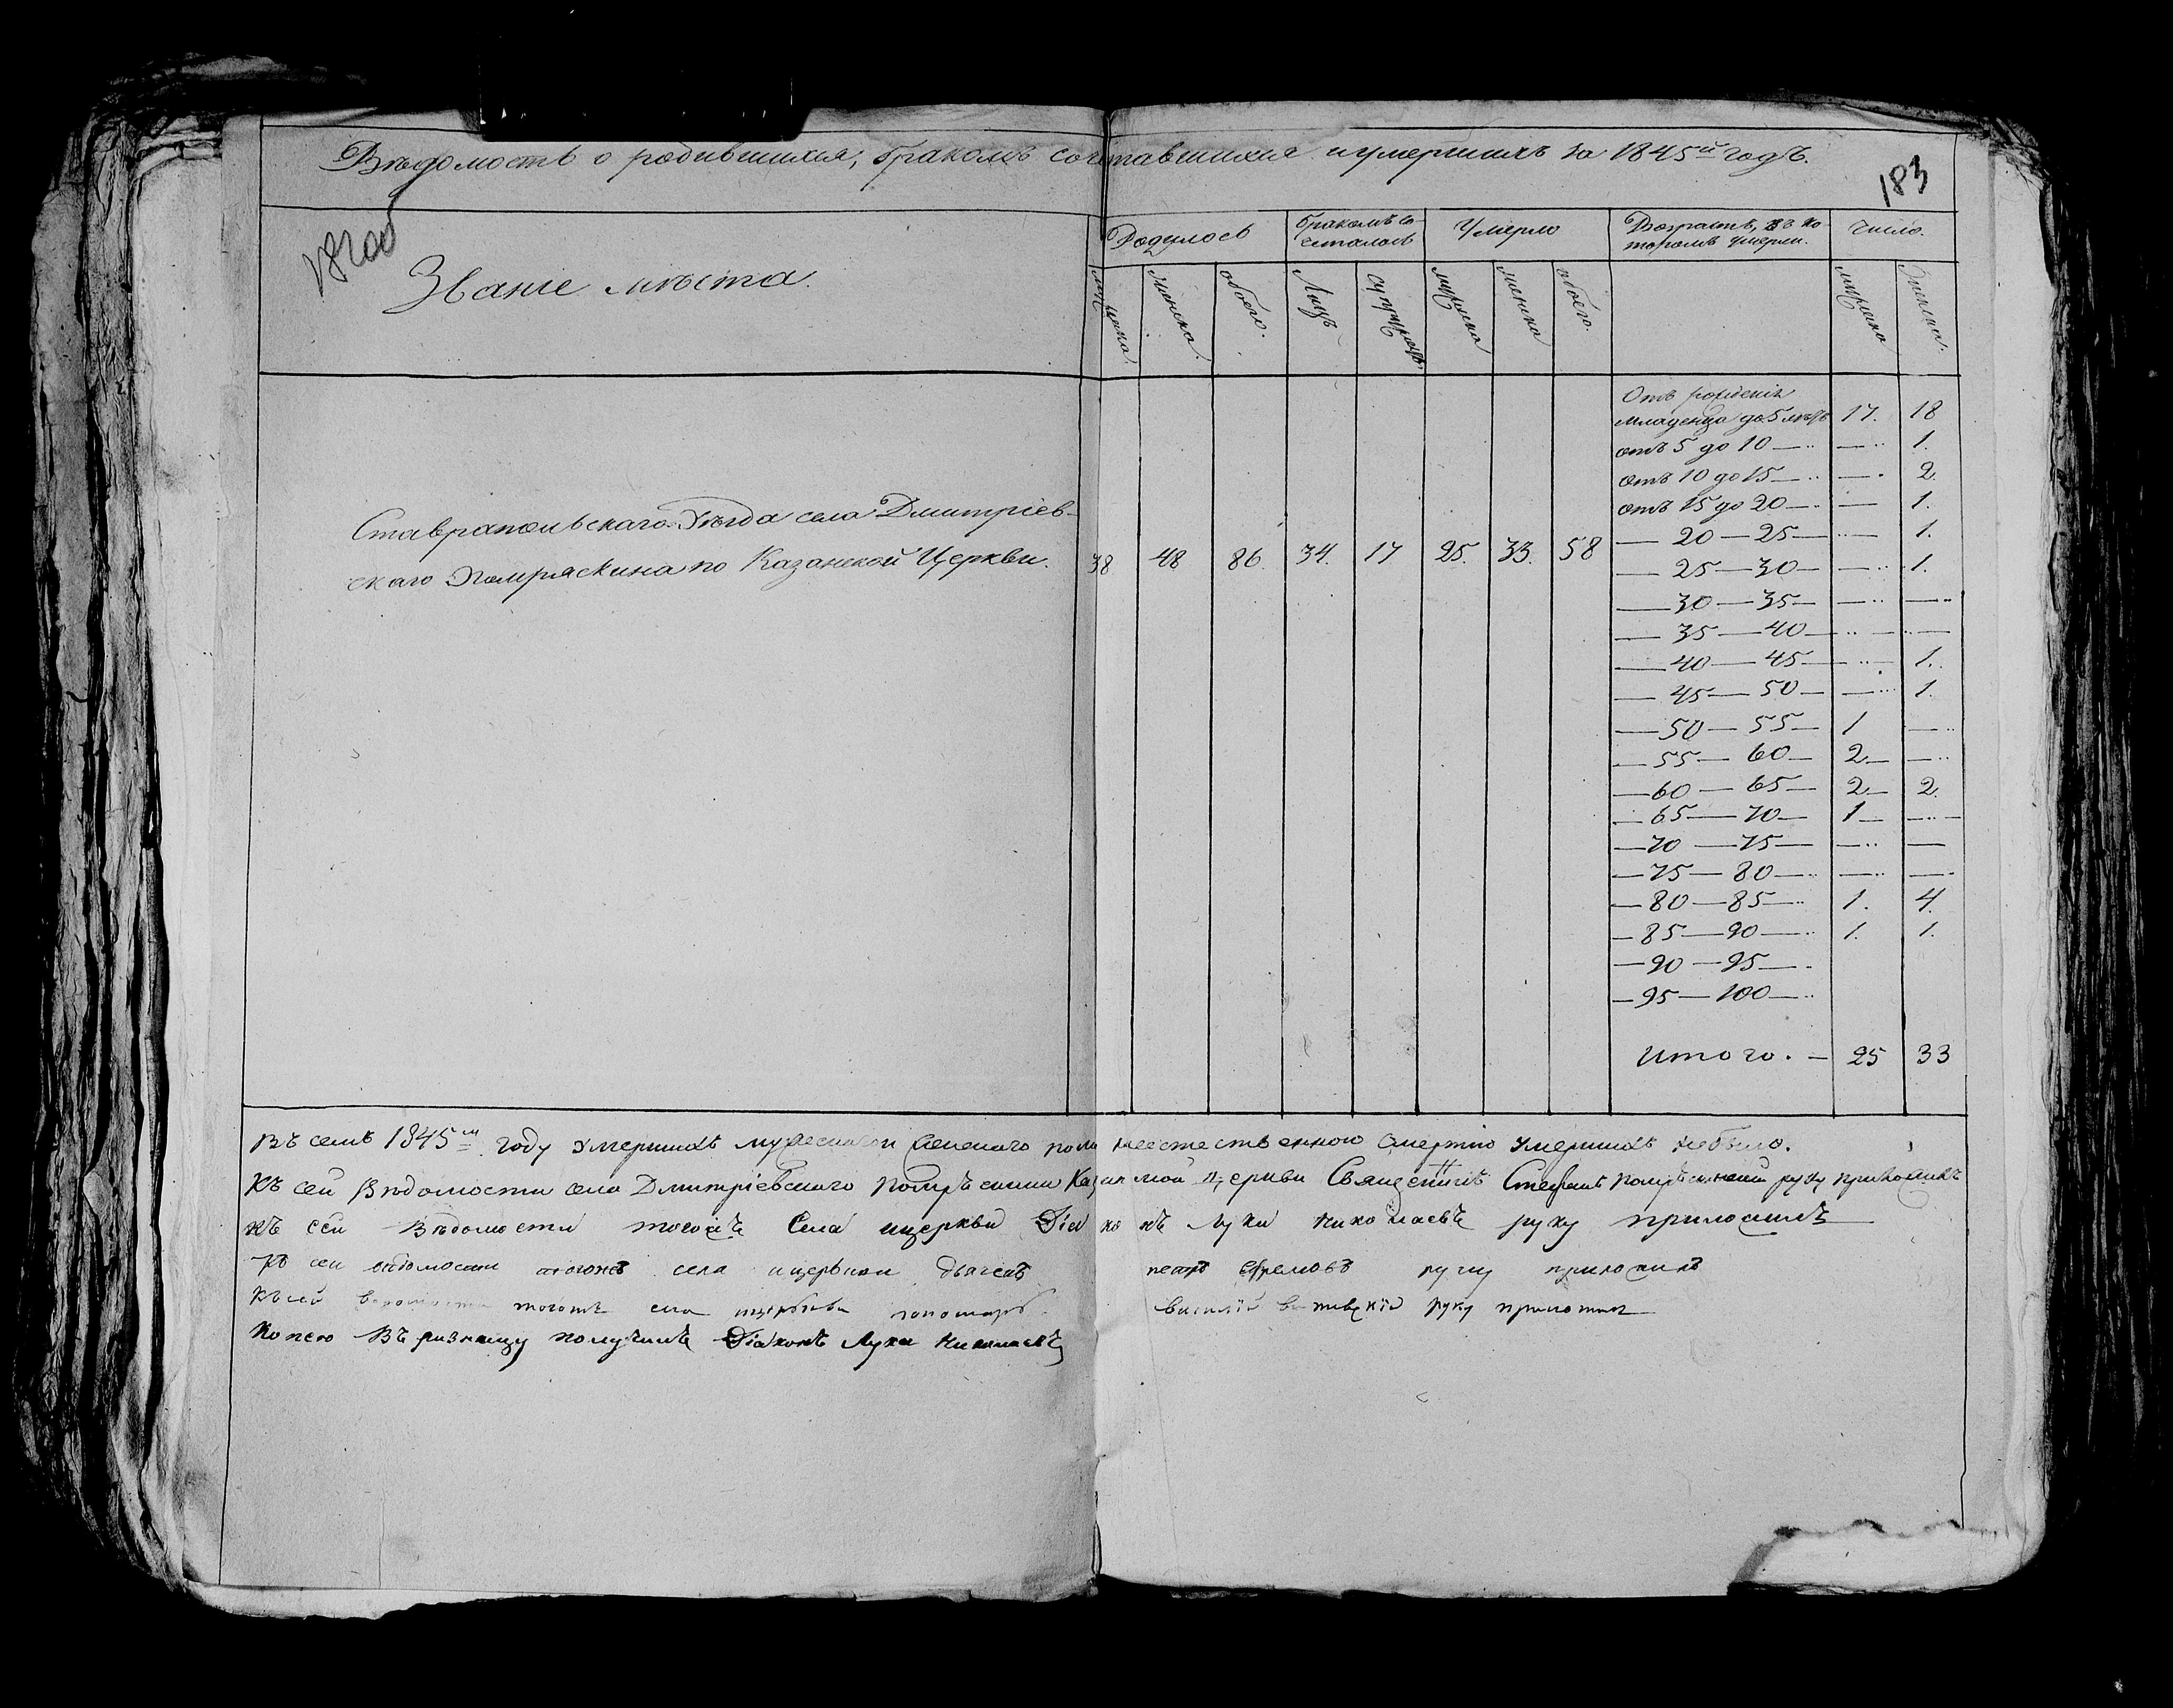 Вѣдомость о родившихся, бракомъ сочетавшихся и умершихъ за 1845й годъ.
183
Званіе мѣста.
Родилось
бракомъ сочеталось
Умерло
Возрастъ, въ которомъ умерли.
Число.
мужска
женска
обоего.
Лицъ
супружествъ
мужска
женска
обоего.
мужска
женска.
Ставропольскаго Уѣзда села Дмитріев-
скаго Помряскина по Казанской Церкви.
38 48 86. 34. 17 25. 33. 58
Отъ рожденія
младенца до 5 лѣтъ 17. 18
отъ 5 до 10 — — 1.
отъ 10 до 15 — — 2.
отъ 15 до 20 — — 1.
— 20 — 25 — — 1.
— 25 — 30 — — 1.
— 30 — 35 — — —
— 35 — 40 — — —
— 40 — 45 — — 1.
— 45 — 50 — — 1.
— 50 — 55 — 1 —
— 55 — 60 — 2 —
— 60 — 65 — 2 2.
— 65 — 70 — 1 —
— 70 — 75 — — —
— 75 — 80 — — —
— 80 — 85 — 1. 4.
— 85 — 90 — 1. 1.
— 90 — 95 —
— 95 — 100 —
Итого. — 25 33
Въ семъ 1845м году умершихъ мужеска и женскаго пола неестественною смертію умершихъ небыло.
Къ сей Вѣдомости села Дмитріевскаго Казанской Церкви Священникъ Стефанъ руку приложилъ
къ сей Вѣдомости тогожъ Села ицеркви Діаконъ Лука Николаевъ руку приложилъ
Къ сей вѣдомости тогожъ села ицеркви дьячекъ петръ Ефремовъ руку приложилъ
Къ сей ведомости тогожъ села ицеркви пономарь василій руку приложилъ
Копею Въ ризницу получилъ Діаконъ Лука Николаевъ